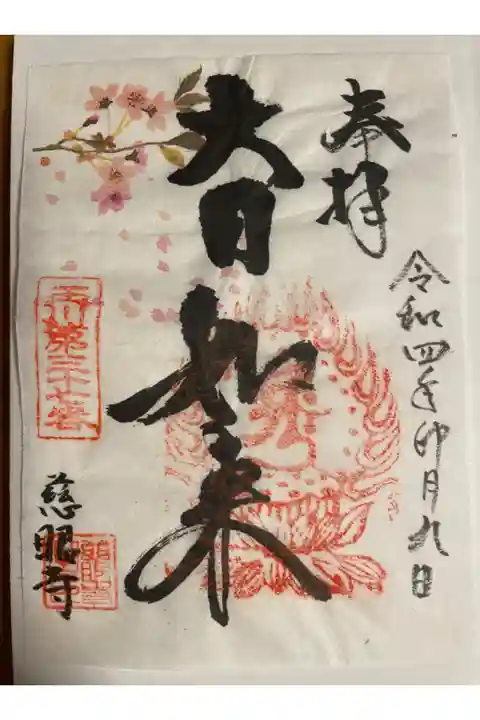 奉拝
令和四年卯月九日
大日如来
玉川第三十七番
慈眼寺